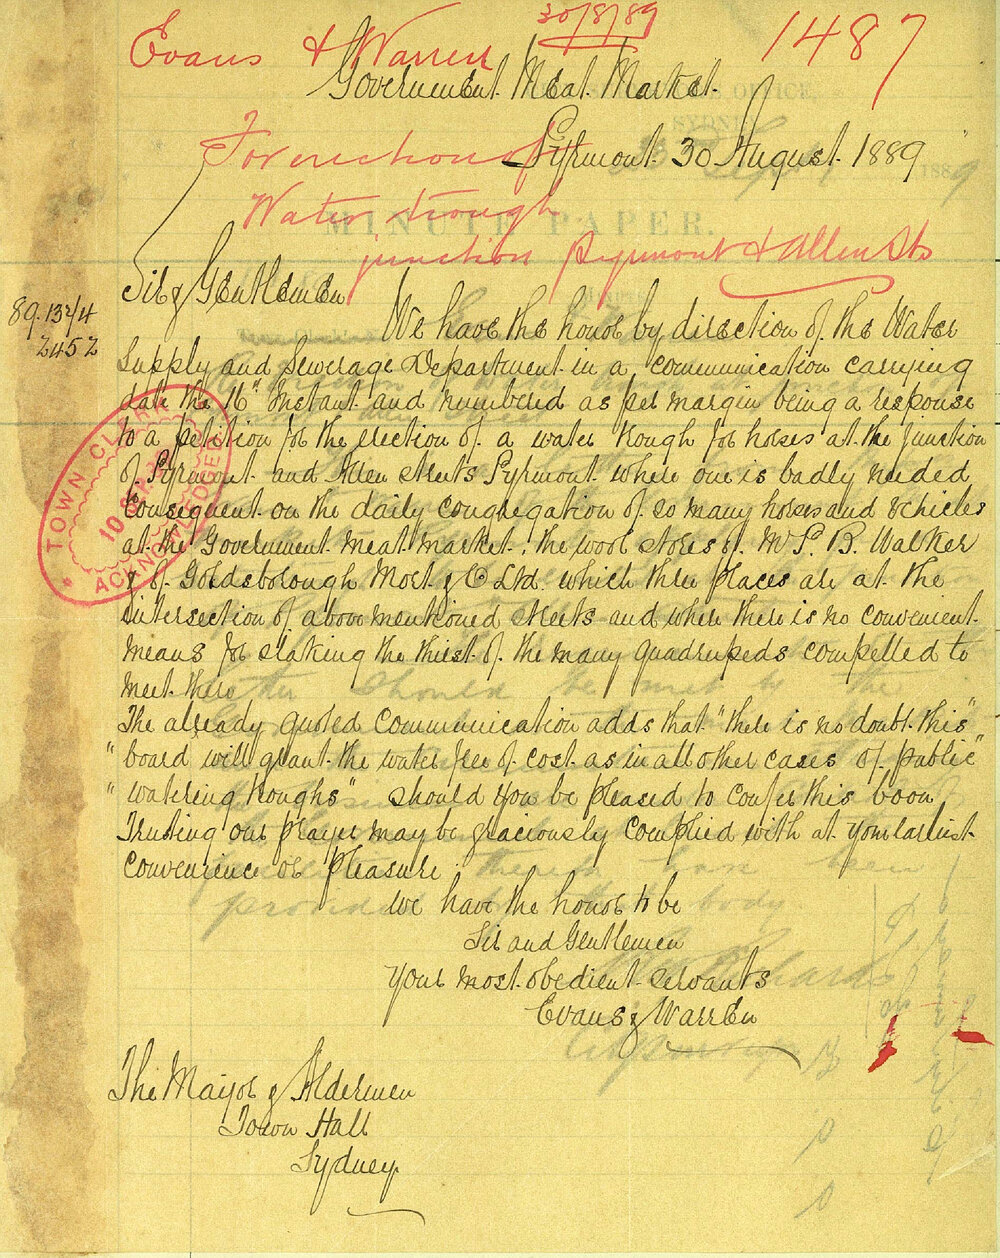 Evans & Warren
30/8/89
1487
Government Meat Market
Pyrmont 30 August 1889
For erection of
Water trough
junction Pyrmont & Allen Sts
MINUTE PAPER.
Sir & Gentlemen
89.132/4
2452
We have the honor by direction of the Water
Supply and Sewerage Department in a communication carrying
date the 16" Instant and numbered as per margin being a response
to a petition for the erection of a water trough for horses at the junction
of Pyrmont and Allen Streets Pyrmont where one is badly needed
Consequent on the daily congregation of so many horses and vehicles
at the Government meat market, the wool stores of Mr P. B. Walker
& of Goldsborough Mort & Co Ltd which three places are at the
intersection of above mentioned streets and where there is no convenient
means for slaking the thirst of the many quadrupeds compelled to
meet there
The already quoted communication adds that "there is no doubt this"
" board will grant the water free of cost as in all other cases of public"
" watering troughs" should you be pleased to confer this boon
Trusting our prayer may be graciously complied with at your earliest
convenience or pleasure;
we have the honor to be
Sir and Gentlemen
your most obedient servants
Evans & Warren
The Mayor & Aldermen
Town Hall
Sydney
TOWN CLERK
10 SEP
ACKNOWLEDGED